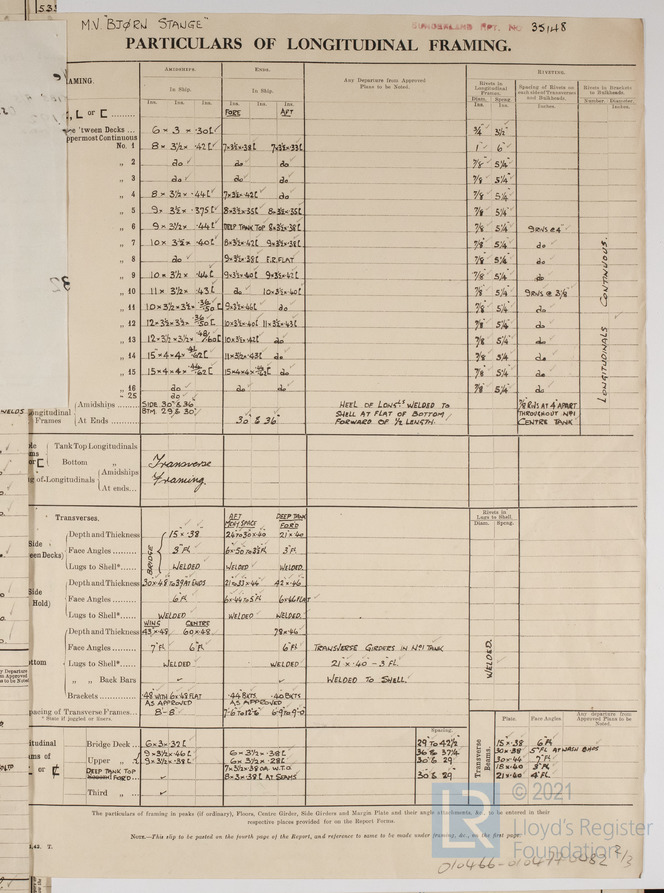 M.V "BJØRN STANGE"
SUNDERLAND RPT. No 35148
PARTICULARS OF LONGITUDINAL FRAMING.
AMIDSHIPS. ENDS. Any Departure from Approved Plans to be Noted. RIVETING.
AMING. In Ship. In Ship. Rivets in Longitudinal Frames. Spacing of Rivets on each side of Transverses and Bulkheads. Rivets in Brackets to Bulkheads.
Diam. Spcng. Number. Diameter.
Ins. Ins. Ins. Ins. Ins. Ins. Ins. Ins. Inches. Inches.
, L or [ FORE AFT
'tween Decks ... 6 × 3 × .30[ 3/4 3½
ppermost Continuous
No. 1 8 × 3½ × .42[ 7×3½×.38[ 7×3½×.33[ 1" 6"
„ 2 do do do 7/8 5¼
„ 3 do do do 7/8 5¼
„ 4 8 × 3½ × .44[ 7×3½×.42[ do 7/8 5¼
„ 5 9 × 3½ × .375[ 8×3½×.35[ 8×3½×.35[ 7/8 5¼
„ 6 9 × 3½ × .44[ DEEP TANK TOP 8×3½×.38[ 7/8 5¼ 9 RIVS @ 4"
„ 7 10 × 3½ × .40[ 8×3½×.42[ 9×3½×.38[ 7/8 5¼ do
„ 8 do 9×3½×.38[ F.R. FLAT 7/8 5¼ do
„ 9 10 × 3½ × .44[ 9×3½×.40[ 9×3½×.42[ 7/8 5¼ do
„ 10 11 × 3½ × .43[ do 10×3½×.40[ 7/8 5¼ 9 RIVS @ 3 3/8
„ 11 10 × 3½ × 3½ × .36/.50[ 9×3½×.46[ do 7/8 5¼ do
„ 12 12 × 3½ × 3½ × .36/.50[ 10×3½×.40[ 11×3½×.43[ 7/8 5¼ do
„ 13 12 × 3½ × 3½ × .60[ 10×3½×.42[ do 7/8 5¼ do
„ 14 15 × 4 × 4 × .62[ 11×3½×.43[ do 7/8 5¼ do
„ 15 15 × 4 × 4 × .62[ 15×4×4× .62[ do 7/8 5¼ do
„ 16 do do do 7/8 5¼ do
„ 25 do
LONGITUDINALS CONTINUOUS.
ongitudinal Frames Amidships SIDE 30" & 36" BTM. 29 & 30" HEEL OF LONGLS WELDED TO 7/8 RIVS AT 4" APART
At Ends ... 30" & 36" SHELL AT FLAT OF BOTTOM THROUGHOUT No1
FORWARD OF ½ LENGTH. CENTRE TANK
Tank Top Longitudinals
or [ Bottom „ Transverse
g of Longitudinals Amidships Framing.
At ends...
Transverses. AFT MCHY SPACE DEEP TANK FORD Rivets in Lugs to Shell.
Diam. Spcng.
Side Depth and Thickness 15 × .38 24 TO 30×.40 21×.40
een Decks) Face Angles ........ BRIDGE 3" FL 6×.50 TO 3½ FL 3" FL
Lugs to Shell* ..... WELDED WELDED WELDED.
Side Depth and Thickness 30×.48 TO 39 AT ENDS 21 TO 33×.44 42×.46
Hold) Face Angles ........ 6" FL 6×.44 TO 5" FL 6×.46 FLAT
Lugs to Shell* ..... WELDED WELDED WELDED.
WING CENTRE
Depth and Thickness 43×.48 60×.48 78×.46
Face Angles ........ 7" FL 6" FL 6" FL TRANSVERSE GIRDERS IN No1 TANK
ottom Lugs to Shell* ..... WELDED WELDED 21 × .40 – 3" FL. WELDED.
„ „ Back Bars WELDED TO SHELL.
Brackets ........ .48 WITH 6×.48 FLAT .44 BKTS .40 BKTS
AS APPROVED AS APPROVED
pacing of Transverse Frames... 8-8 7-6 TO 12-6 6-9 TO 9-0
* State if joggled or liners.
Plate. Face Angles. Any departure from Approved Plans to be Noted.
Spacing.
itudinal Bridge Deck... 6 × 3 × .32[ 29 TO 42½ Transverse Beams. 15×.38 6" FL
ms of Upper „ 9 × 3½ × .46[ 6 × 3½ × .38[ 36 & 37¼ 30×.38 5" FL AT WASH BHDS
9 × 3½ × .38[ 6 × 3½ × .28[ 30 & 29 30×.44 7" FL
L or [ DEEP TANK TOP 7×3½×.38 ON W.T.O 18×.40 3" FL
FORD... 8×3×.38[ AT SEAMS 30 & 29 21×.40 4" FL
Third „
The particulars of framing in peaks (if ordinary), Floors, Centre Girder, Side Girders and Margin Plate and their angle attachments, &c., to be entered in their
respective places provided for on the Report Forms.
NOTE.—This slip to be posted on the fourth page of the Report, and reference to same to be made under framing, &c., on the first page.
© 2021
Lloyd's Register
Foundation
2/3